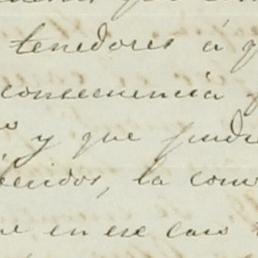 tenedores á q
consecuencia
y que pudi
la com
e en ese caso